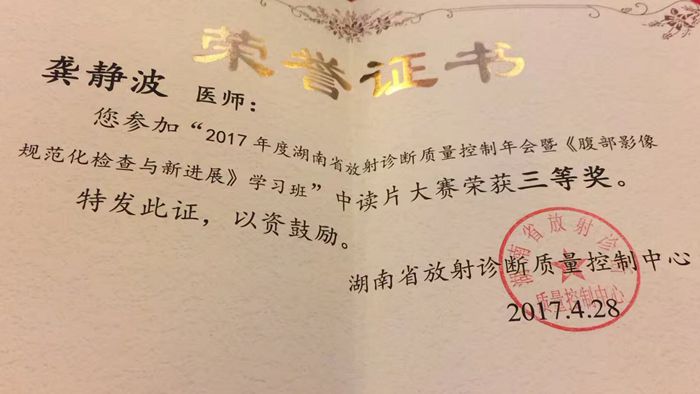 荣誉证书
龚静波 医师：
您参加“2017年度湖南省放射诊断质量控制年会暨《腹部影像
规范化检查与新进展》学习班”中读片大赛荣获三等奖。
特发此证，以资鼓励。
湖南省放射诊断质量控制中心
2017.4.28
湖南省放射诊断
质量控制中心